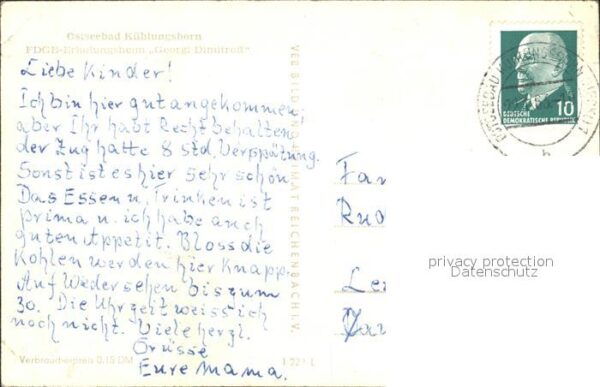 Ostseebad Kühlungsborn
FDGB-Erholungsheim „Georgi Dimitroff"
Liebe Kinder!
Ich bin hier gut angekommen,
aber Ihr habt Recht behalten
der Zug hatte 8 Std. Verspätung.
Sonst ist es hier sehr schön.
Das Essen u. Trinken ist
prima u. ich habe auch
guten Appetit. Bloss die
Kohlen werden hier knapp.
Auf Wiedersehen bis zum
30. Die Uhrzeit weiss ich
noch nicht. Viele herzl.
Grüsse
Eure Mama.
Verbraucherpreis 0,15 DM
REICHENBACH I. V.
10
DEUTSCHE
DEMOKRATISCHE REPUBLIK
OSTSEEBAD
b
Fam
Rud
privacy protection
Datenschutz